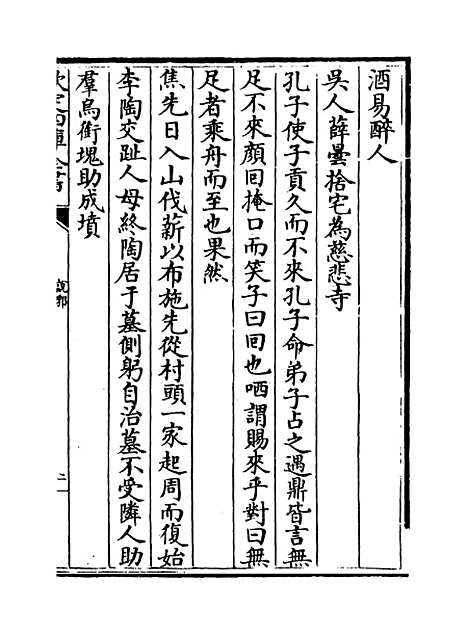 酒易醉人
吳人薛曇捨宅為慈悲寺
孔子使子貢久而不來孔子命弟子占之遇鼎皆言無
足不來顏回掩口而笑子曰回也哂謂賜來乎對曰無
足者乘舟而至也果然
焦先日入山伐薪以布施先從村頭一家起周而復始
李陶交趾人母終陶居于墓側躬自治墓不受隣人助
羣烏銜塊助成墳
欽定四庫全書
說郛